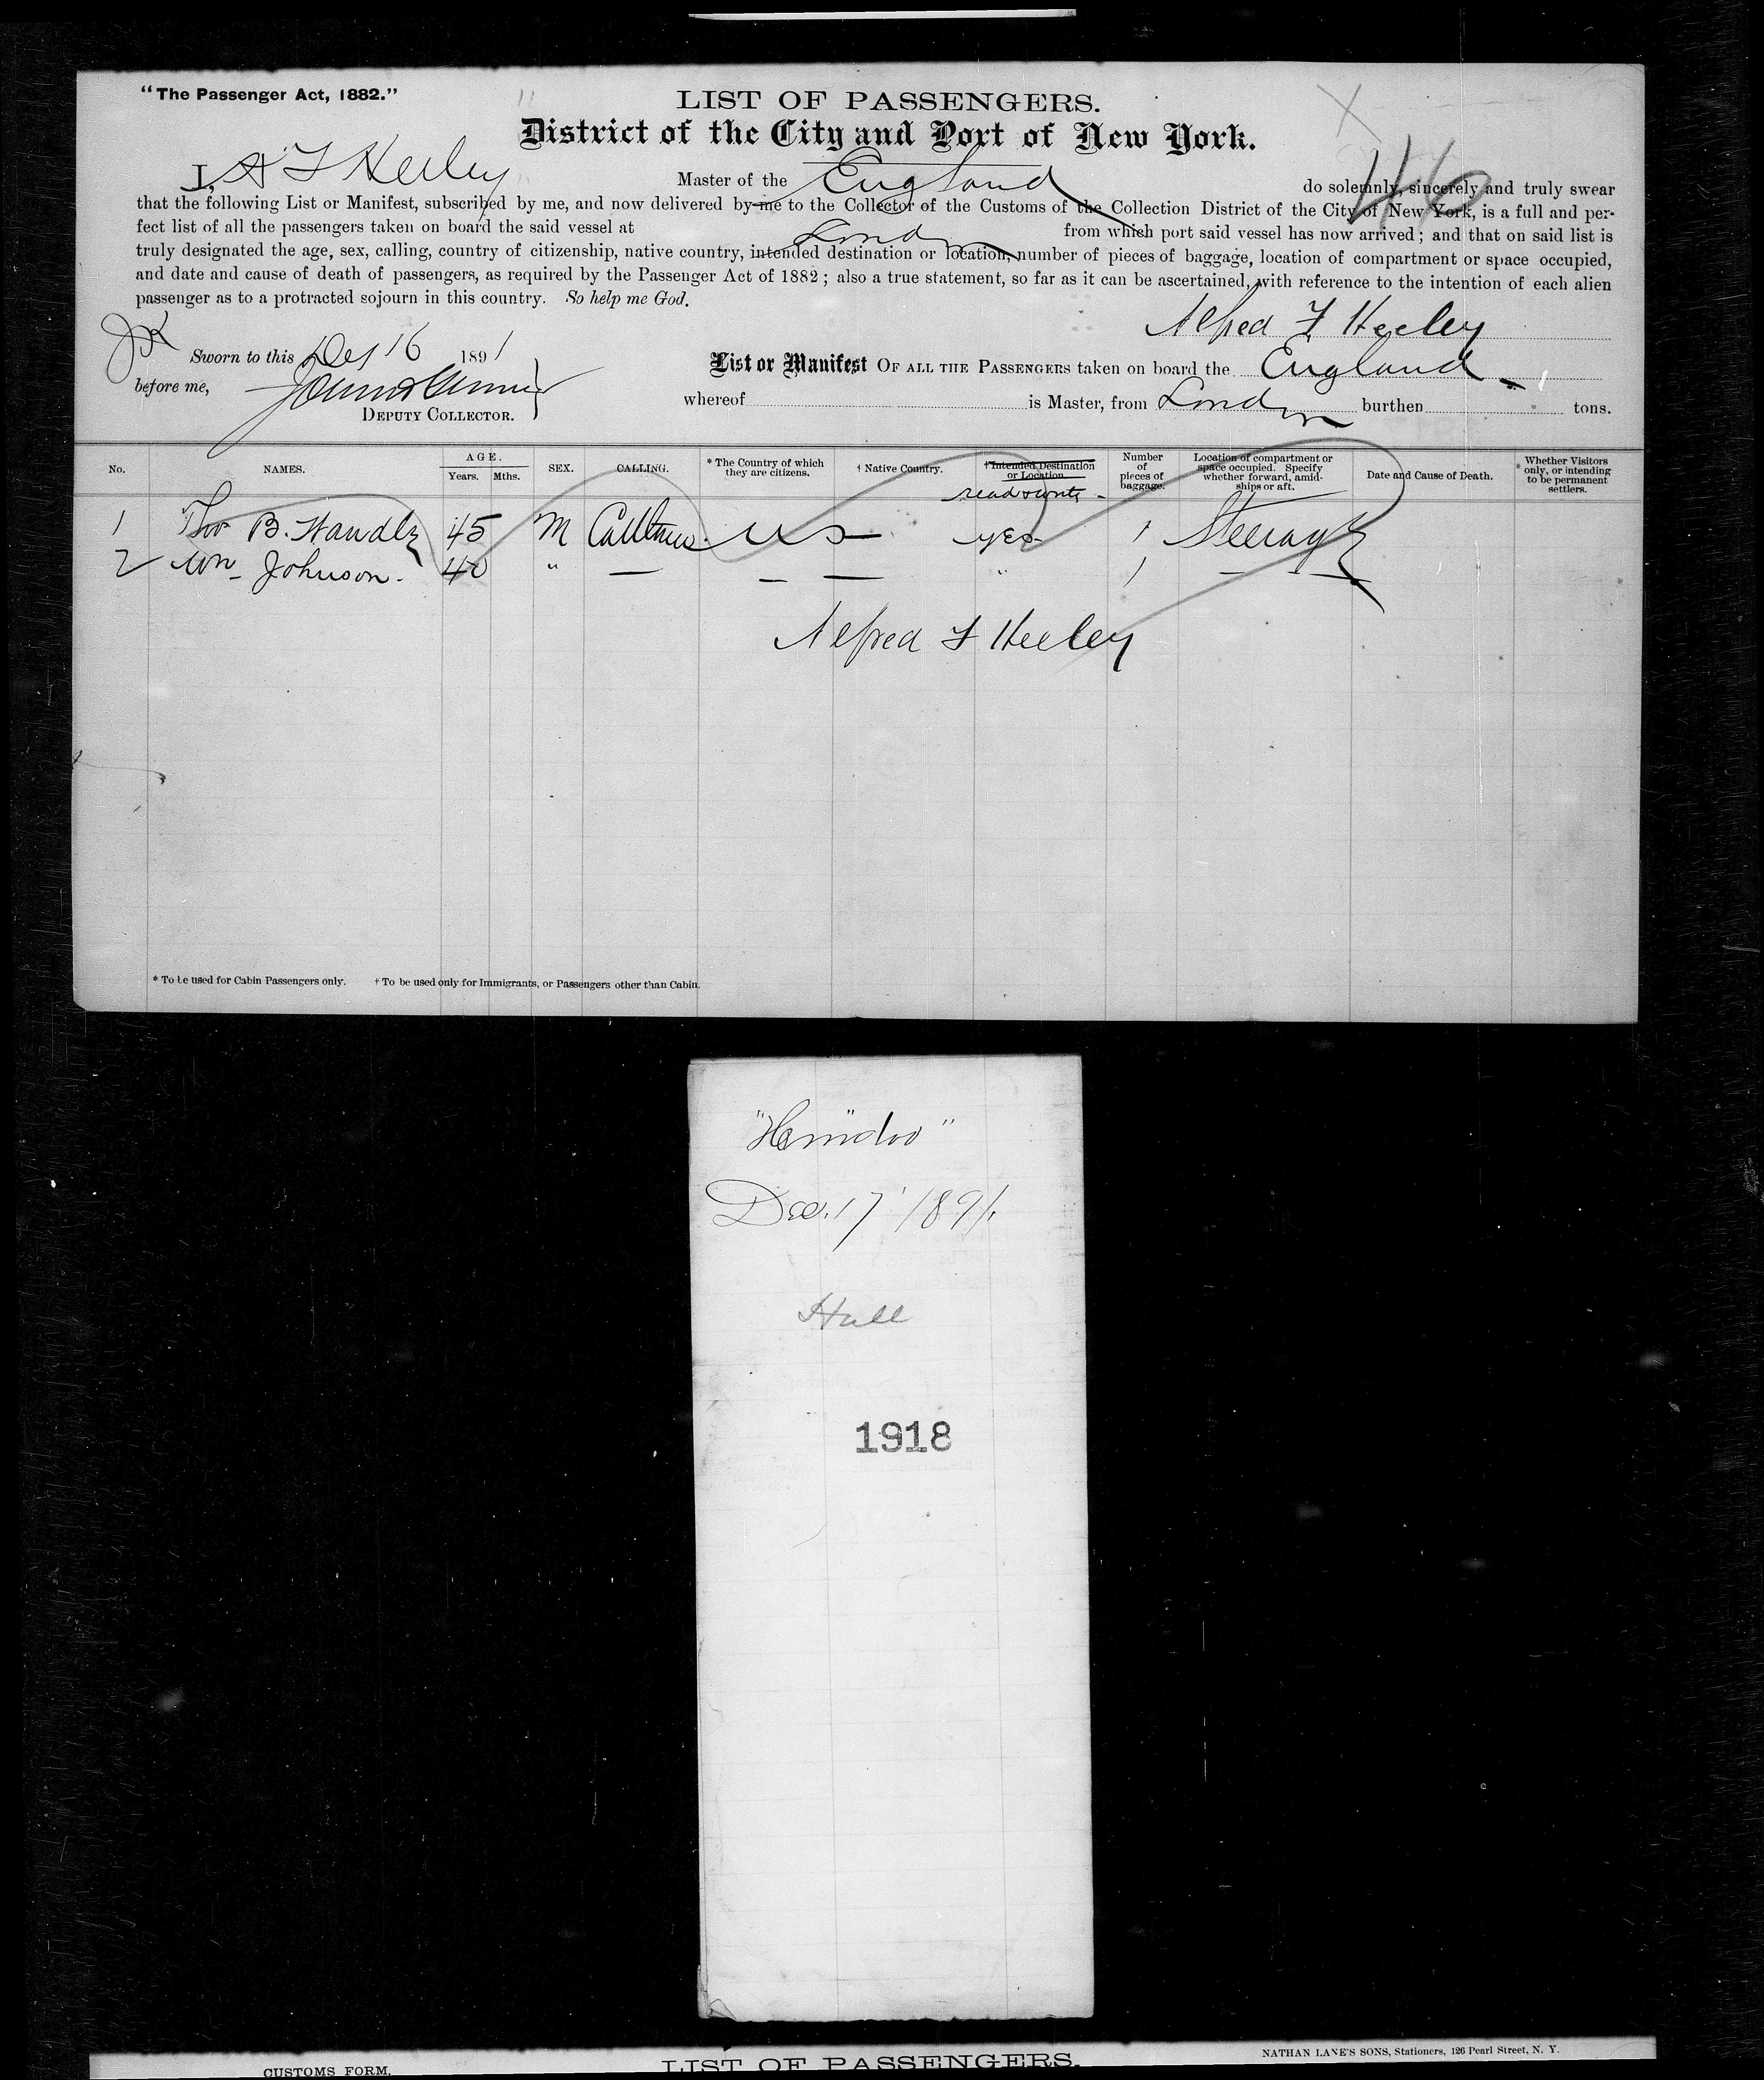 "The Passenger Act, 1882."
LIST OF PASSENGERS.
District of the City and Port of New York.
46
I, A F Heeley Master of the England do solemnly, sincerely and truly swear
that the following List or Manifest, subscribed by me, and now delivered by me to the Collector of the Customs of the Collection District of the City of New York, is a full and per-
fect list of all the passengers taken on board the said vessel at London from which port said vessel has now arrived; and that on said list is
truly designated the age, sex, calling, country of citizenship, native country, intended destination or location, number of pieces of baggage, location of compartment or space occupied,
and date and cause of death of passengers, as required by the Passenger Act of 1882; also a true statement, so far as it can be ascertained, with reference to the intention of each alien
passenger as to a protracted sojourn in this country. So help me God.
Alfred F Heeley
Sworn to this Dec 16 1891
before me,
DEPUTY COLLECTOR.
List or Manifest OF ALL THE PASSENGERS taken on board the England
whereof is Master, from London burthen tons.
No. NAMES. AGE. Years. Mths. SEX. CALLING. * The Country of which they are citizens. † Native Country. † Intended Destination or Location. Number of pieces of baggage. Location of compartment or space occupied. Specify whether forward, amidships or aft. Date and Cause of Death. * Whether Visitors only, or intending to be permanent settlers.
read & write -
1 Thos B. 45 M US yes 1 Steerage
2 Wm Johnson. 40 " — — — " 1 — — —
Alfred F Heeley
* To be used for Cabin Passengers only. † To be used only for Immigrants, or Passengers other than Cabin.
"Hindoo"
Dec. 17 1891.
Hull
1918
CUSTOMS FORM.
LIST OF PASSENGERS.
NATHAN LANE'S SONS, Stationers, 126 Pearl Street, N. Y.